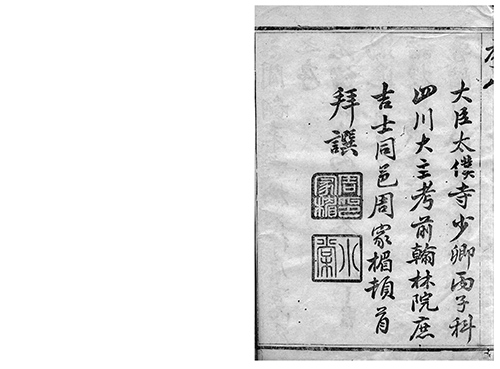 大臣太僕寺少卿丙子科
四川大主考前翰林院庶
吉士同邑周家楣頓首
拜譔
周印家楣
小棠